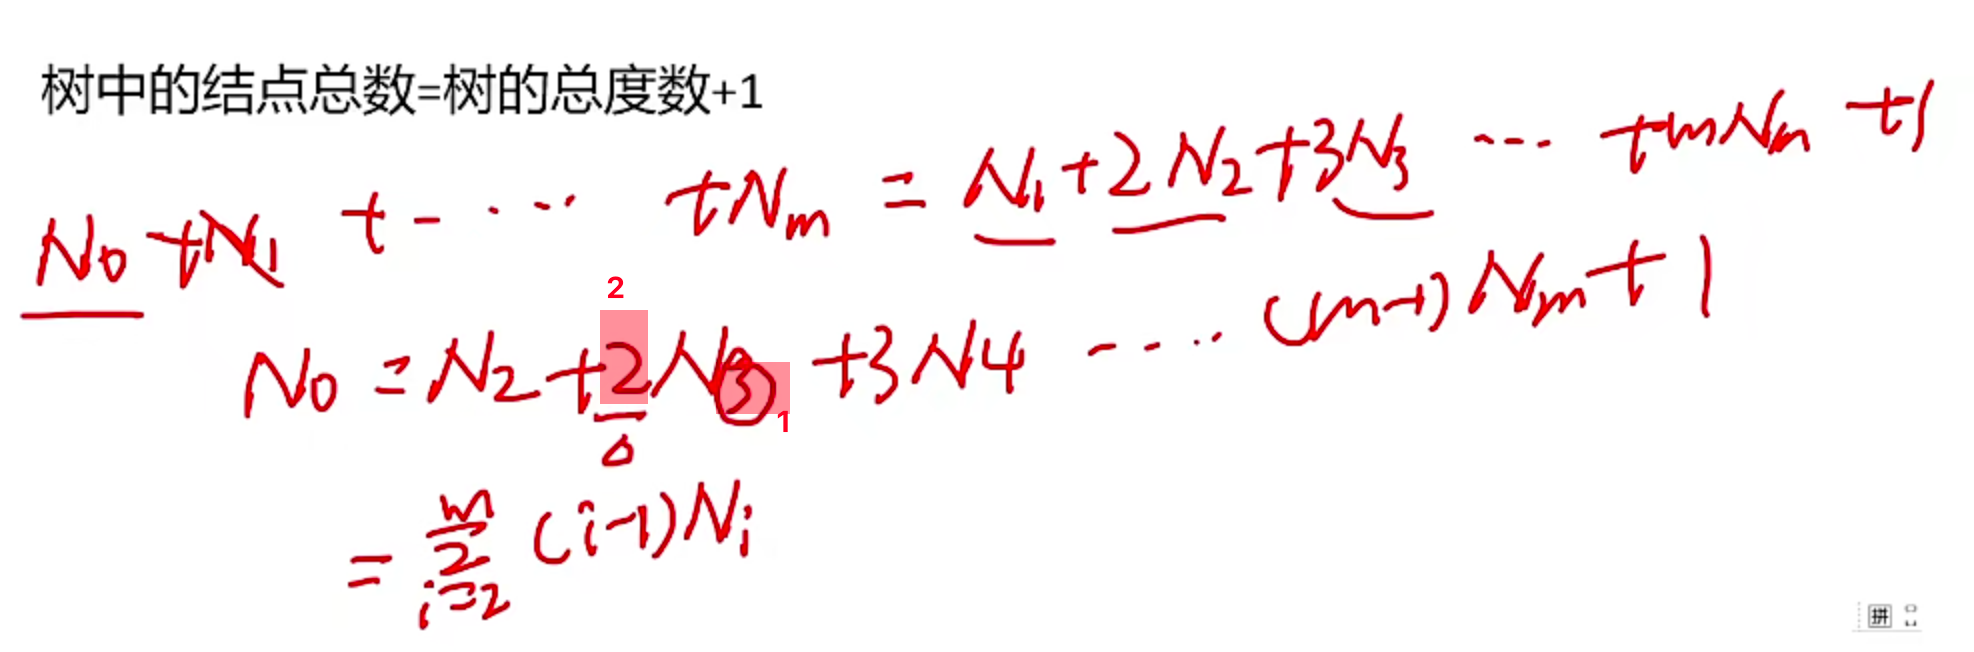 树中的结点总数=树的总度数+1
N0 +N1 + - ... +Nm = N1+2N2+3N3 ... +mNm +1
2
N0 = N2 +2N3 +3N4 .... (m-1)Nm+1
1
= m∑i=2 (i-1)Ni
拼